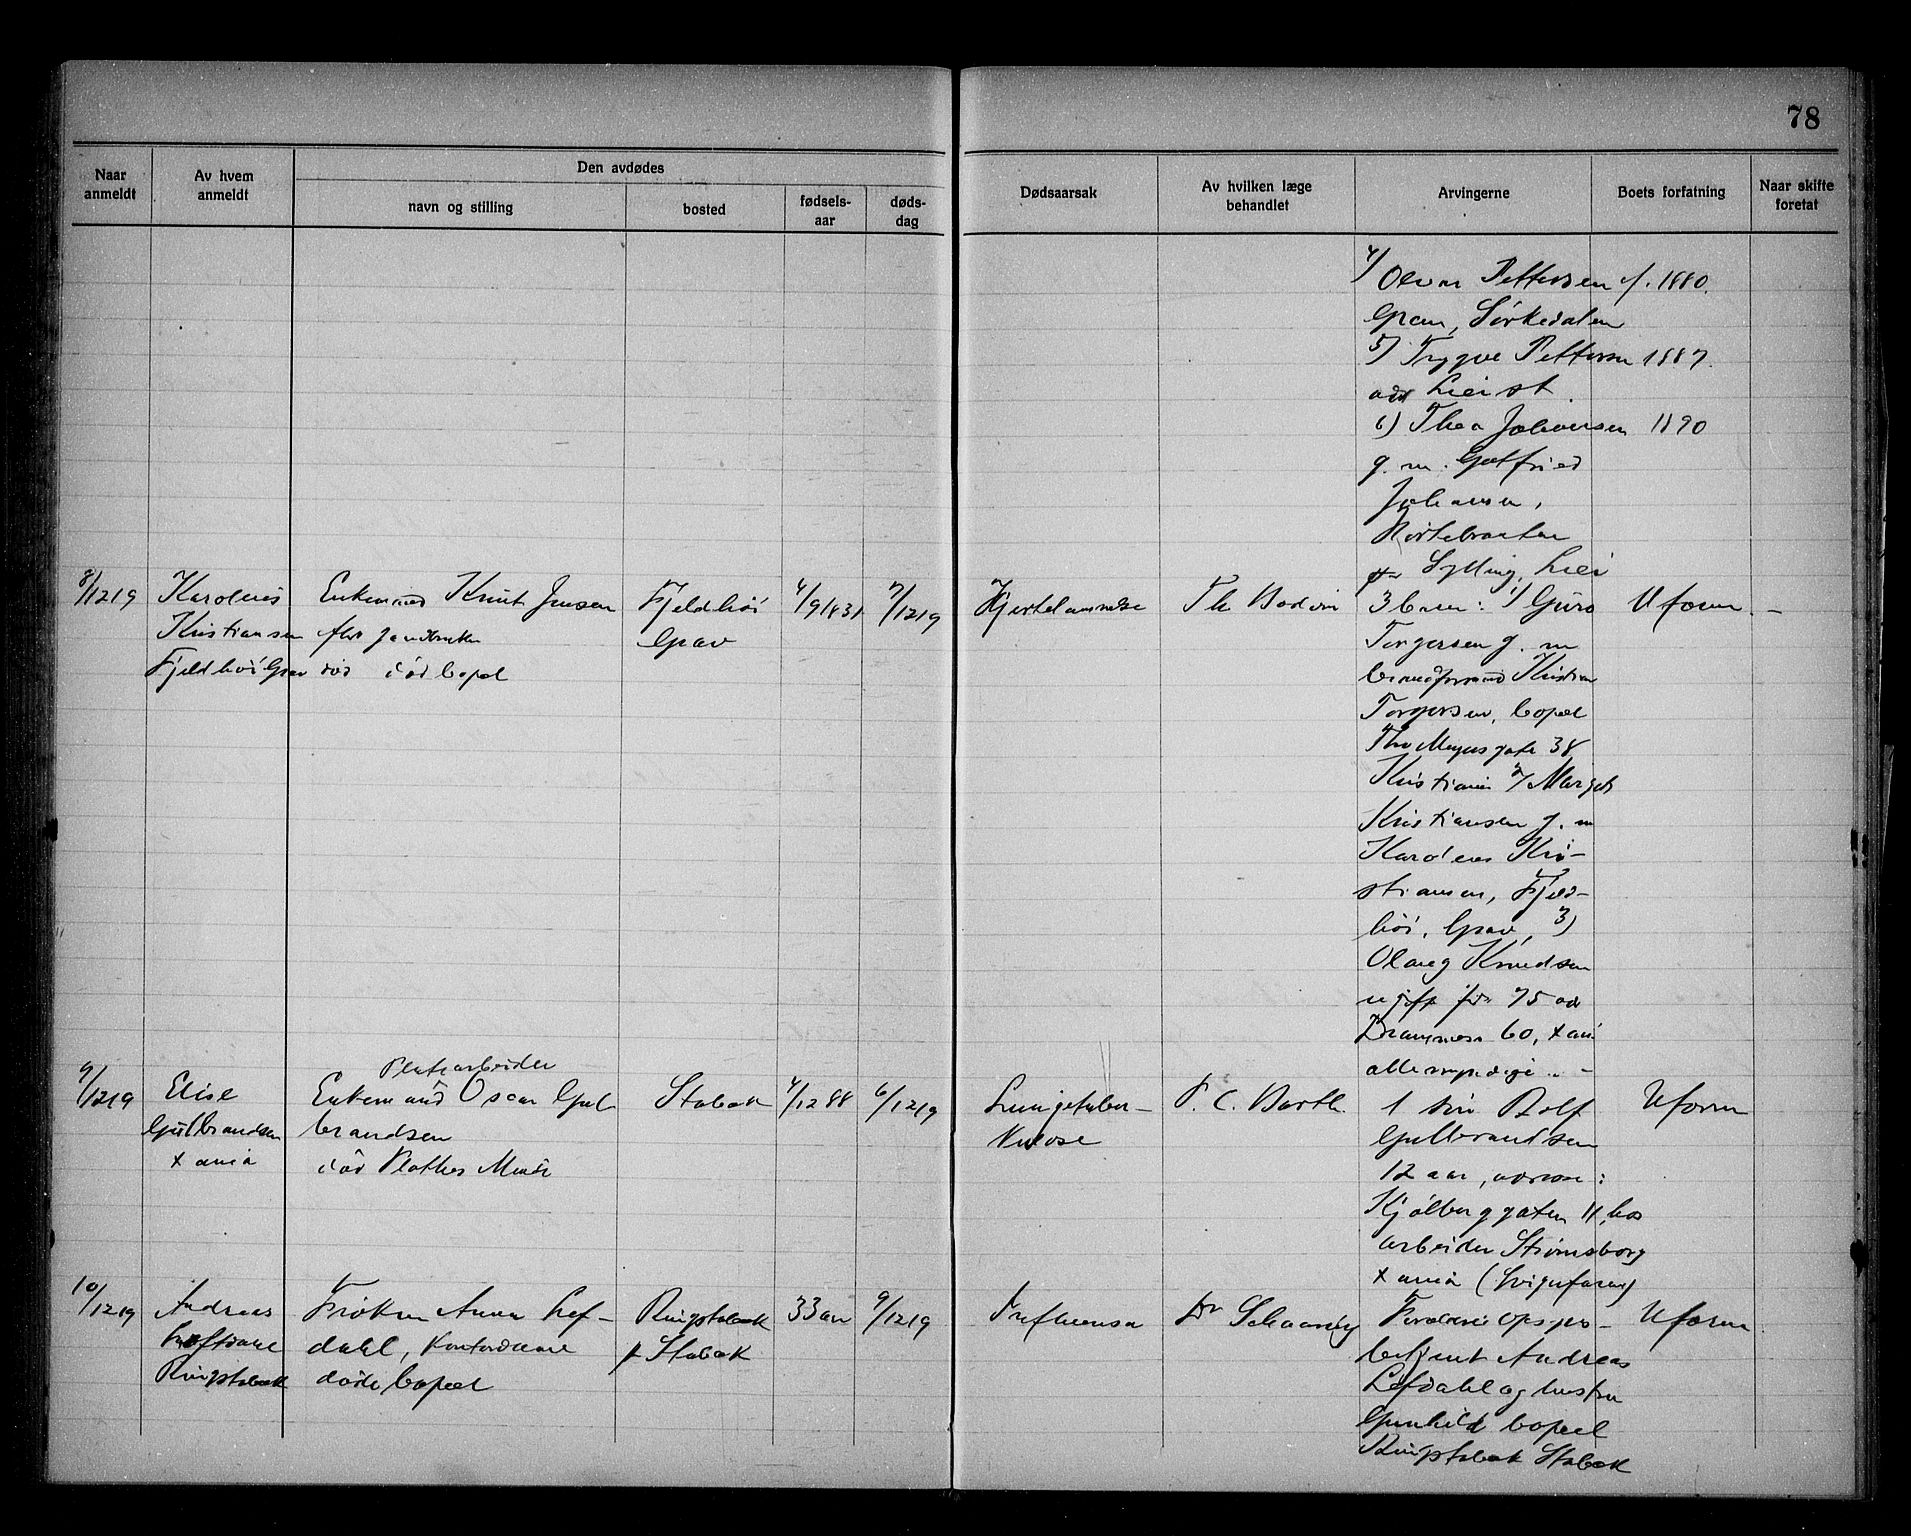 78
Naar anmeldt
Av hvem anmeldt
Den avdødes
navn og stilling
bosted
fødsels-aar
døds-dag
Dødsaarsak
Av hvilken læge behandlet
Arvingerne
Boets forfatning
Naar skifte foretat
4) Olvar Pettersen f. 1880.
Gran, Sørkedalen
5) Trygve Pettersen 1887.
adr Lier st.
6) Thea Johansen 1890
g. m. Gotfried
Johansen,
Sylling, Lier
8/12 19
Karolius
Kristiansen
Fjeldhøi Grav
Enkemand Knut Jensen
død i sød bopel
Fjeldhøi
Grav
4/9 1831
7/12 19
Hjertelammelse
Th Bodvin
3 barn: 1) Guro
Torgersen g. m
brandformand Kristian
Torgersen, bopæl
Thv Meyersgate 38
Kristiania 2) Margit
Kristiansen g. m
Karolius Kri-
stiansen, Fjeld-
høi, Grav, 3)
Olaug Knudsen
ugift før 75 adr
60, Xania
alle myndige. -
Uform. -
9/12 19
Elise
Gulbrandsen
Xania
Platearbeider
Enkemand Oscar Gul
brandsen
død Plathes Minde
Stabæk
4/12 88
6/12 19
Lungetuber-
kulose
P. C. Barth.
1 søn Rolf
Gulbrandsen
12 aar, adresse:
Kjølberggaten 11, hos
arbeider Strømsborg
Xania (Svigerfaren)
Uform
10/12 19
Andreas
Lefdahl
Ringstabæk
Frøken Anna Lef-
dahl, Kontordame
døde bopæl
Ringstabæk
p Stabæk
33 aar
9/12 19
Influensa
Dr Schaaning
Forældre opsyns-
betjent Andreas
Lefdahl og hustru
Gunhild bopæl
Ringstabæk Stabæk
Uform